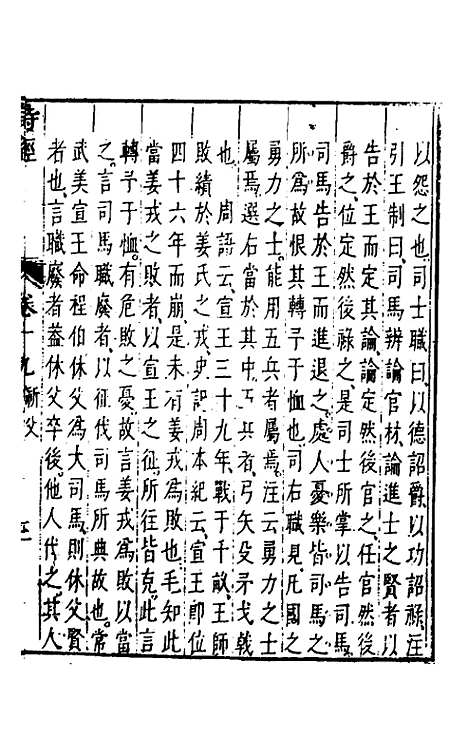 以怨之也司士職曰以德詔爵以功詔祿注
引王制曰司馬辨論官材論進士之賢者以
告於王而定其論論定然後官之任官然後
爵之位定然後祿之是司士所掌以告司馬
司馬告於王而進退之處人憂樂皆司馬之
所爲故恨其轉予于恤也司右職見凡國之
勇力之士能用五兵者屬焉注云勇力之士
屬焉選右當於其中五兵者弓矢殳矛戈戟
也周語云宣王三十九年戰于千畝王師
敗績於姜氏之戎史記周本紀云宣王卽位
四十六年而崩是未有姜戎爲敗也毛知此
當姜戎之敗者以宣王之征所往皆克此言
轉予于恤有危敗之憂故言姜戎爲敗以當
之言司馬職廢者以征伐司馬所典故也常
武美宣王命程伯休父爲大司馬則休父賢
者也言職廢者蓋休父卒後他人代之其人
詩經 卷十九 祈父